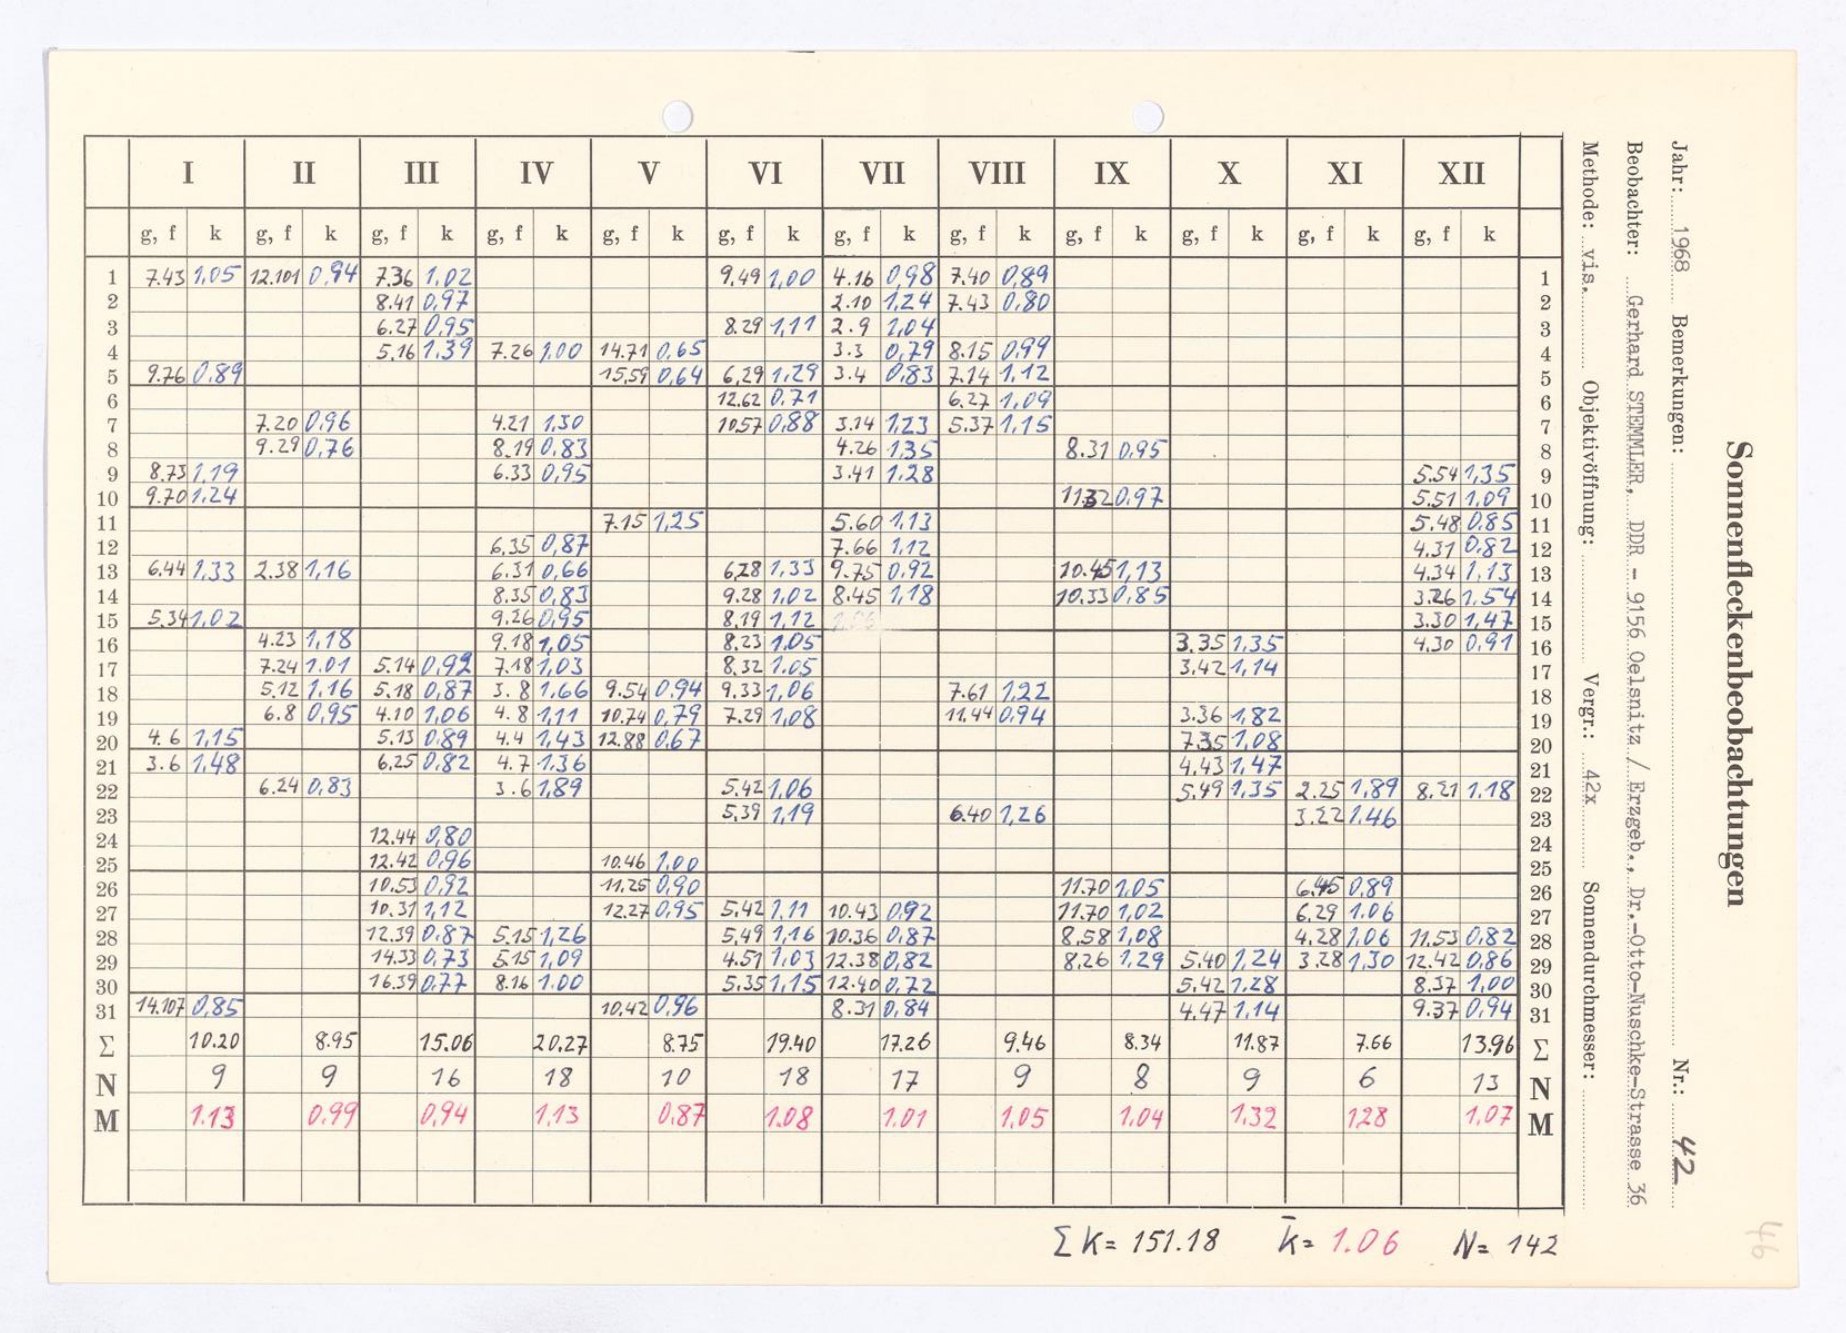 Sonnenfleckenbeobachtungen
Jahr: 1968 Bemerkungen: Nr.: 42
Beobachter: Gerhard STEMMLER, DDR - 9156 Oelsnitz / Erzgeb., Dr.-Otto-Nuschke-Strasse 36
Methode: vis. Objektivöffnung: Vergr.: 42x Sonnendurchmesser:
I II III IV V VI VII VIII IX X XI XII
g, f k g, f k g, f k g, f k g, f k g, f k g, f k g, f k g, f k g, f k g, f k g, f k
1 7.43 1,05 12.101 0,94 7.36 1,02 9,49 1,00 4.16 0,98 7.40 0,89 1
2 8.41 0,97 2.10 1,24 7.43 0,80 2
3 6.27 0,95 8.29 1,11 2.9 1,04 3
4 5,16 1,39 7.26 1,00 14.71 0,65 3.3 0,79 8.15 0,99 4
5 9.76 0,89 15,59 0,64 6,29 1,29 3.4 0,83 7.14 1,12 5
6 12.62 0,71 6.27 1,09 6
7 7.20 0,96 4.21 1,30 10.57 0,88 3.14 1,23 5.37 1,15 7
8 9.29 0,76 8.19 0,83 4.26 1,35 8.31 0,95 8
9 8.73 1,19 6.33 0,95 3.41 1.28 5.54 1,35 9
10 9.70 1.24 11.32 0.97 5.51 1,09 10
11 7.15 1,25 5.60 1,13 5.48 0,85 11
12 6.35 0,87 7.66 1,12 4.31 0,82 12
13 6.44 1,33 2.38 1,16 6.31 0,66 6.28 1,33 9.75 0,92 10.45 1,13 4.34 1,13 13
14 8.35 0,83 9.28 1,02 8.45 1,18 10.33 0,85 3.26 1.54 14
15 5.34 1,02 9.26 0,95 8,19 1,12 3.30 1,47 15
16 4.23 1,18 9.18 1,05 8.23 1.05 3.35 1,35 4.30 0,91 16
17 7.24 1.01 5.14 0,92 7.18 1,03 8.32 1.05 3.42 1,14 17
18 5.12 1,16 5.18 0,87 3. 8 1,66 9.54 0.94 9.33 1,06 7.61 1,22 18
19 6.8 0,95 4.10 1,06 4. 8 1,11 10.74 0,79 7.29 1,08 11.44 0,94 3.36 1,82 19
20 4. 6 1,15 5.13 0,89 4.4 1,43 12.88 0,67 7.35 1,08 20
21 3. 6 1,48 6,25 0,82 4.7 1,36 4.43 1,47 21
22 6.24 0,83 3.6 1,89 5.42 1,06 5.49 1,35 2.25 1,89 8.21 1.18 22
23 5,39 1,19 6.40 1,26 3.22 1.46 23
24 12.44 0,80 24
25 12.42 0,96 10.46 1,00 25
26 10.53 0,92 11.25 0,90 11.70 1,05 6.45 0,89 26
27 10.31 1,12 12.27 0,95 5,42 1,11 10.43 0,92 11.70 1,02 6,29 1.06 27
28 12.39 0.87 5.15 1,26 5,49 1,16 10.36 0,87 8,58 1,08 4.28 1,06 11.53 0,82 28
29 14.33 0,73 5.15 1,09 4.51 1,03 12.38 0,82 8.26 1.29 5.40 1,24 3.28 1,30 12.42 0,86 29
30 16.39 0,77 8.16 1.00 5,35 1,15 12.40 0,72 5.42 1,28 8.37 1,00 30
31 14.107 0,85 10,42 0,96 8.31 0,84 4.47 1,14 9.37 0,94 31
Σ 10.20 8.95 15.06 20.27 8.75 19.40 17.26 9.46 8.34 11.87 7.66 13.96 Σ
N 9 9 16 18 10 18 17 9 8 9 6 13 N
M 1.13 0.99 0,94 1,13 0,87 1.08 1.01 1,05 1,04 1,32 1,28 1,07 M
Σ k = 151.18 k̄ = 1.06 N = 142
46